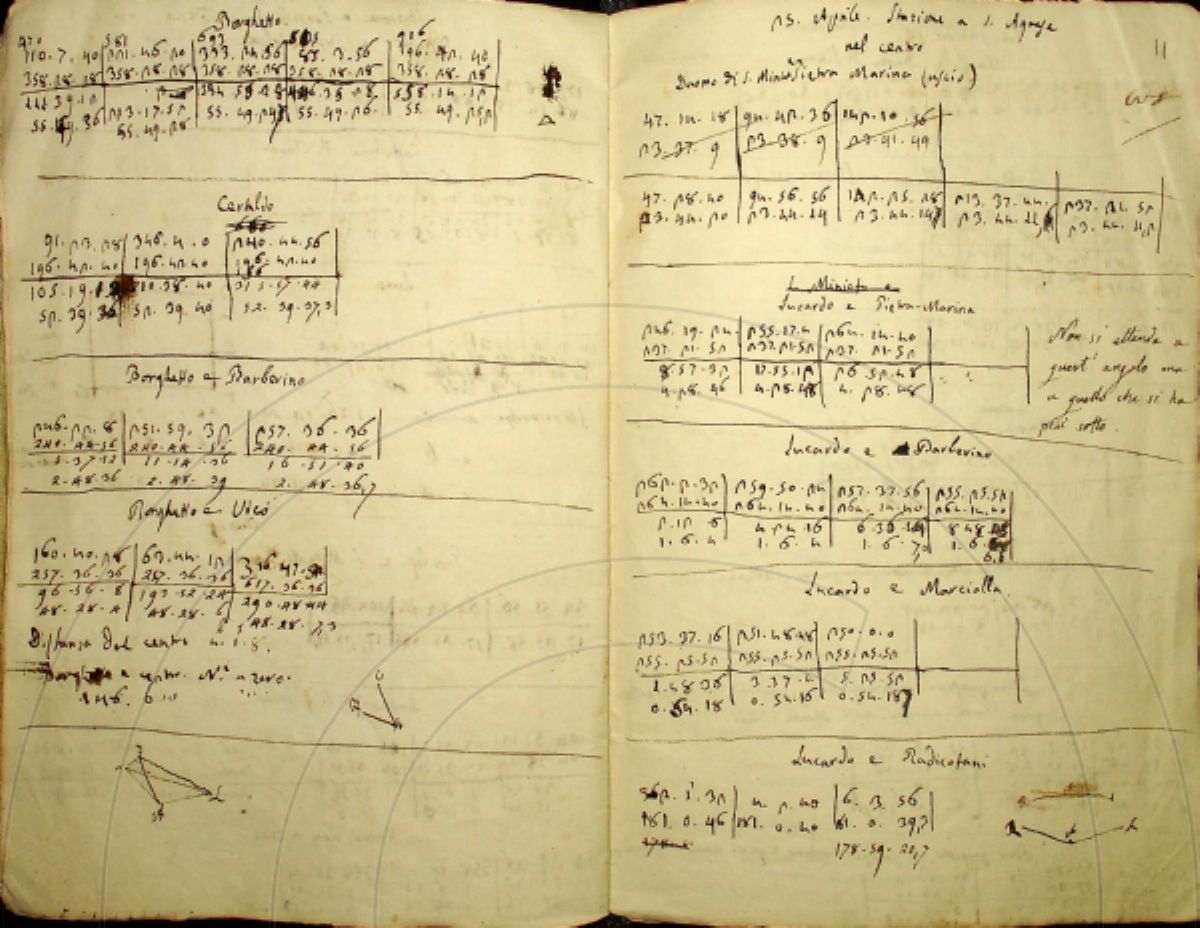 Borghetto
470 581 693 805 916
110.7.40 221.46.20 333.24.56 85.3.56 196.42.40
358.28.28 358.28.28 358.28.28 358.28.28 358.28.28
111.39.12 334.56.28 446.35.28 558.14.12
55.49.36 223.17.52 55.49.24,7 55.49.26 55.49.25,2
55.49.28
Certaldo
91.23.28 346.4.0 240.44.56
196.42.40 196.42.40 196.42.40
105.19.12 210.38.40 315.57.44
52.39.36 52.39.40 52.39.37,3
Borghetto e Barberino
246.22.8 251.59.32 257.36.36
240.44.56 240.44.56 240.44.56
5.37.12 11.14.36 16.51.40
2.48.36 2.48.39 2.48.36,7
Borghetto e Vico
160.40.28 63.44.12
257.36.36 257.36.36 617.36.36
96.56.8 193.52.24 290.48.44
48.28.4 48.28.6 48.28.7,3
Distanza dal centro 4.1.8.
Borghetto e centro. N.° a zero.
146.
23. Aprile. Stazione a S. Agnese
nel centro
11
Duomo di S. Miniato Pietra Marina (uscio)
47.14.18 94.42.36
23.37.9 23.38.9 23.41.49
47.28.40 94.56.56 142.25.28 213.37.44 237.21.52
23.44.20 23.44.14 23.44.14,7 23.44.11,2
S. Miniato
Lucardo e Pietra-Marina
246.19.24 255.17.4 264.14.40
237.21.52 237.21.52 237.21.52
8.57.32 17.55.12 26.52.48
4.28.46 4.28.48 4.28.48
Non si attenda a
quest'angolo ma
a quello che si ha
più sotto.
Lucardo e Barberino
262.2.32 259.50.24 257.37.56 255.25.52
264.14.40 264.14.40 264.14.40 264.14.40
4.24.16 6.36.44 8.48.48
1.6.4 1.6.4 1.6.7,3 1.6.
Lucardo e Marcialla.
253.37.16 251.48.48 250.0.0
255.25.52 255.25.52 255.25.52
1.48.36 3.37.4 5.25.52
0.54.18 0.54.16 0.54.18,7
Lucardo e Radicofani
362.1.32 4.2.40 6.3.56
181.0.46 181.0.40 181.0.39,3
178.59.20,7